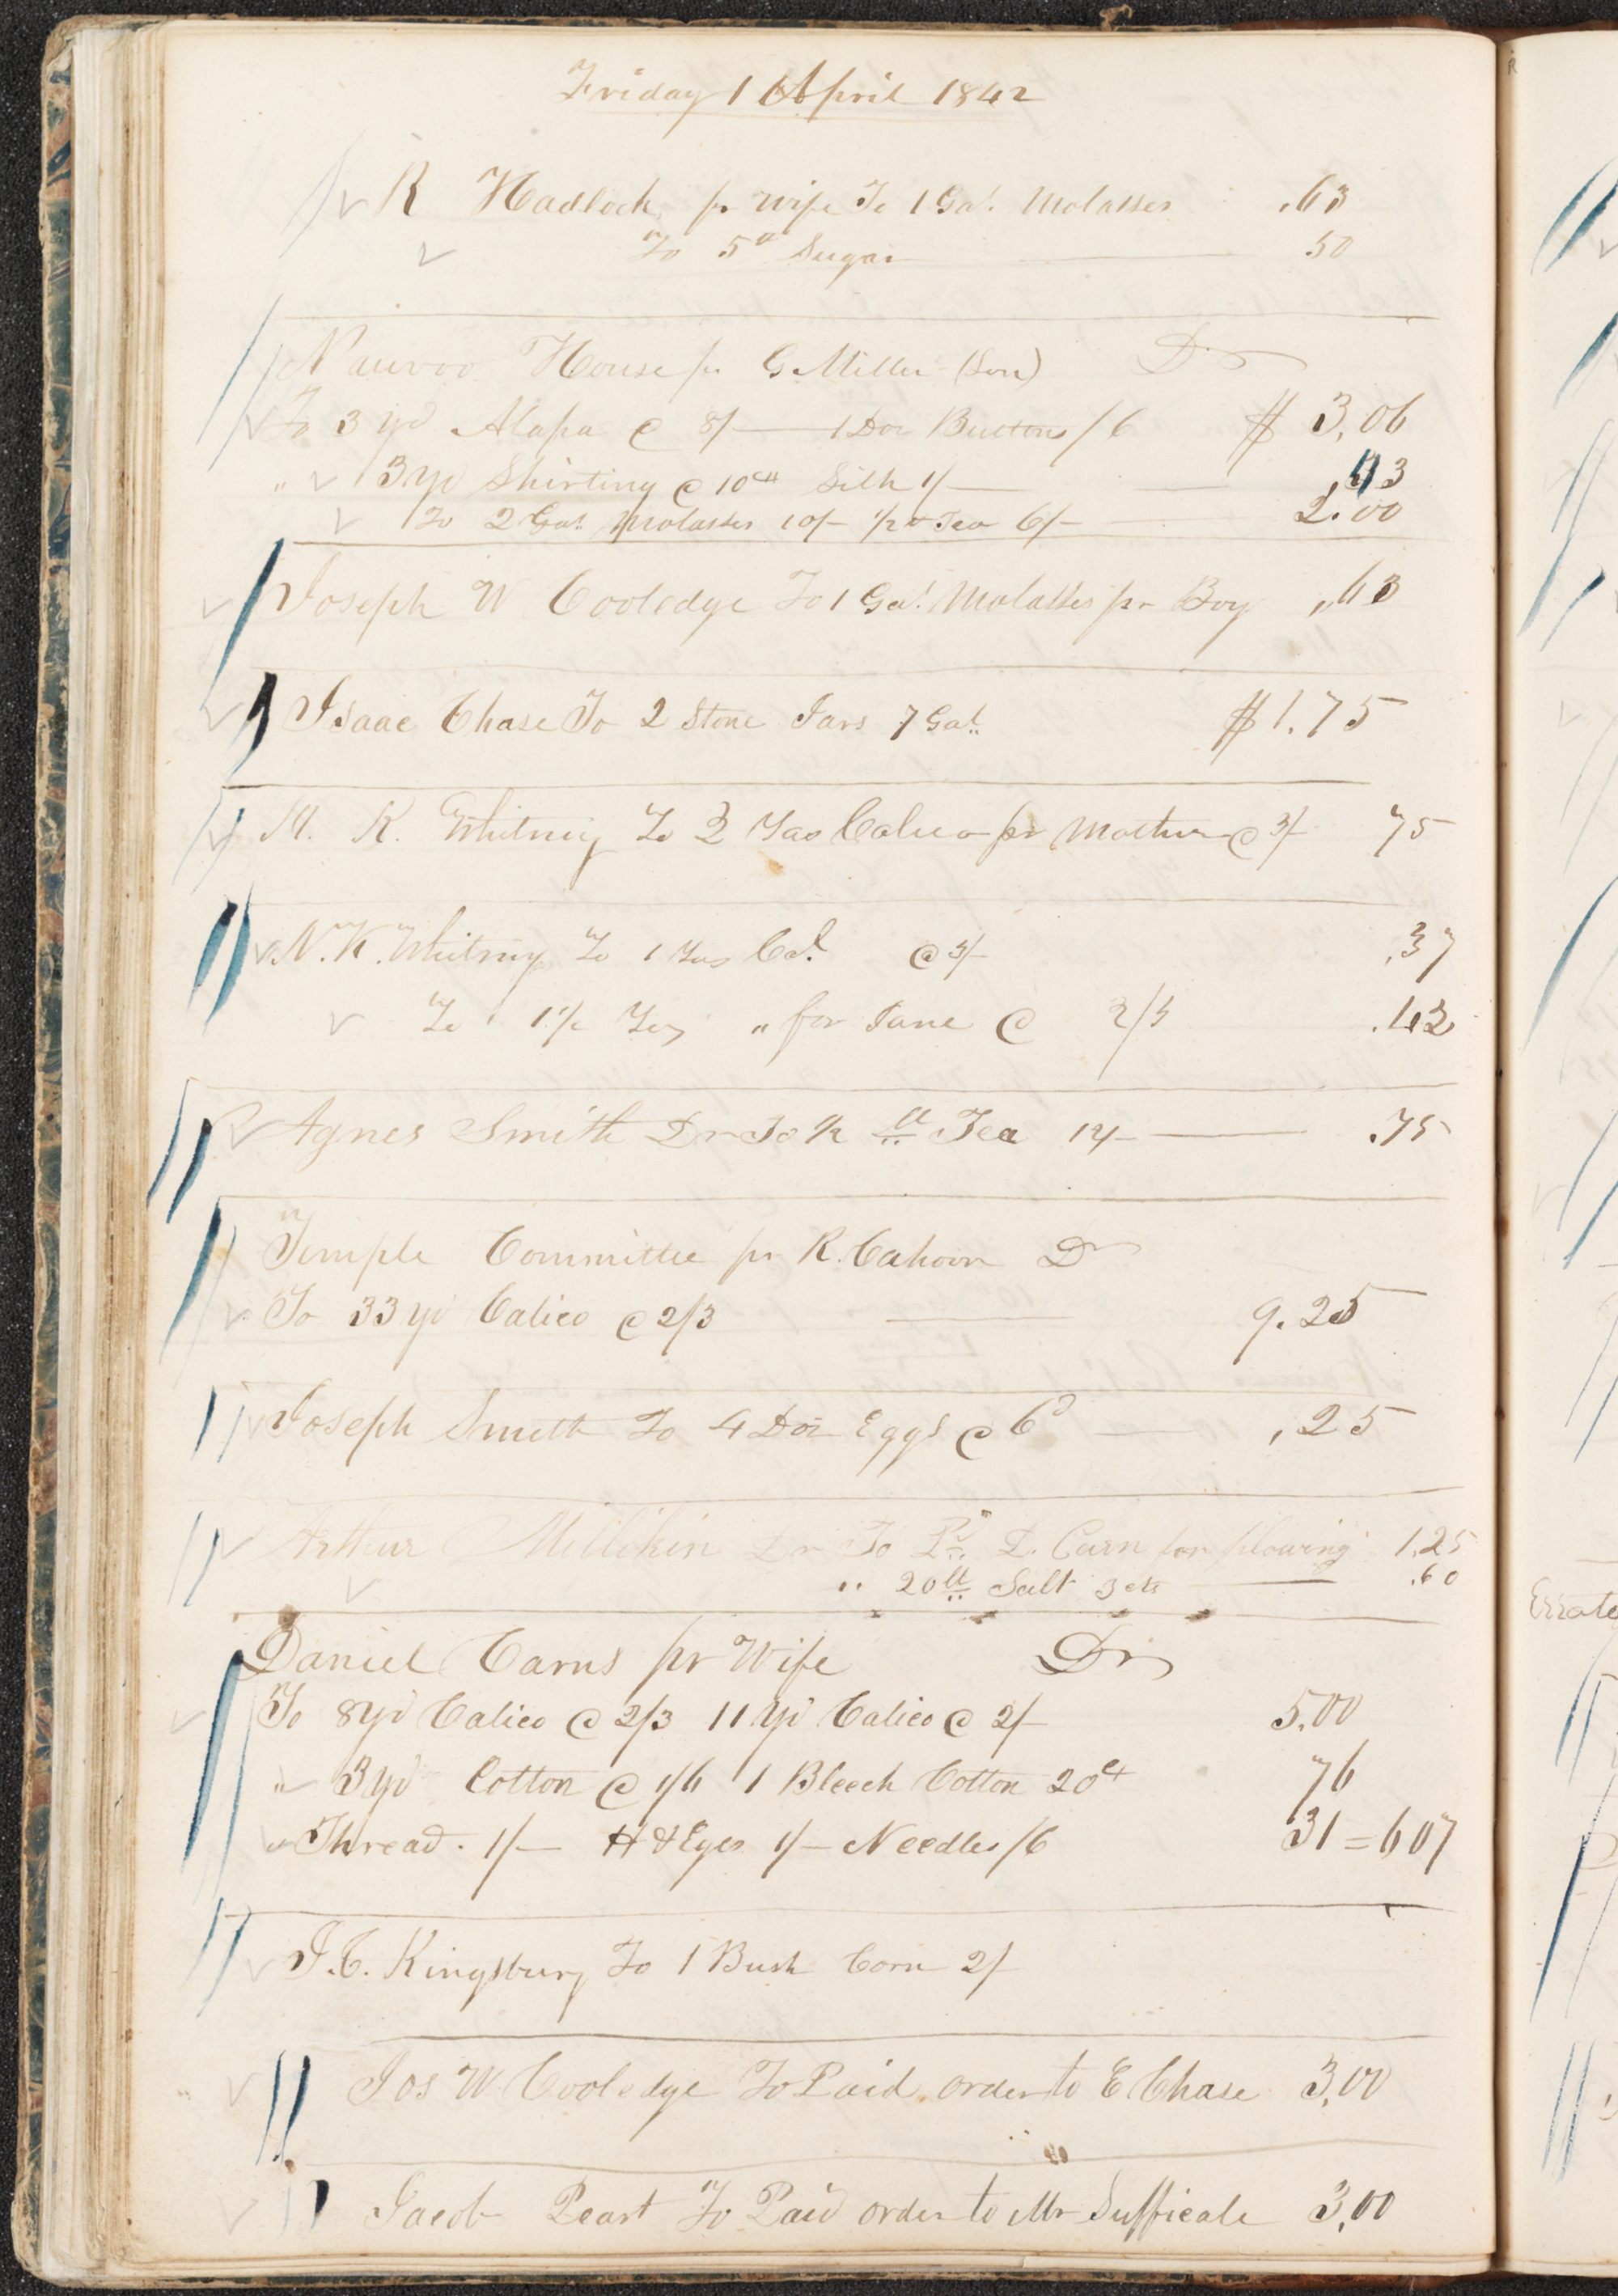 Friday 1 April 1842
R Hadlock pr wife To 1 Gal. Molasses .63
To 5 lb Sugar 50
Nauvoo House pr G Miller (Son) Dr
To 3 yd Alapa @ 8/— 1 Doz Buttons /6 $ 3,06
" 3 yd Shirting @ 10ct Silk 1/— ,43
To 2 Gal. Molasses 10/— 1/2 lb Tea 6/— 2.00
Joseph W Coolidge To 1 Gal. Molasses pr Boy ,63
Isaac Chase To 2 Stone Jars 7 Gal. $1.75
N. K. Whitney To 2 Yds Calico pr Mother @ 3/- 75
N. K. Whitney To 1 Yds Cal. @ 3/- .37
To 1 1/2 Yds " for Jane @ 2/3 .42
Agnes Smith Dr To 1/2 lb Tea 12/— .75
Temple Committee pr R. Cahoon Dr
To 33 yd Calico @ 2/3 9.25
Joseph Smith To 4 Doz Eggs @ 6d ,25
Arthur Millikin Dr To Pd. D. Carn for plowing 1.25
" 20 lb Salt 3 cts .60
Daniel Carns pr Wife Dr
To 8 yd Calico @ 2/3 11 yd Calico @ 2/- 5.00
" 3 yd Cotton @ 1/6 1 Bleech Cotton 20ct 76
Thread. 1/— H & Eyes 1/— Needles /6 31 = 607
J. C. Kingsbury To 1 Bush Corn 2/
Jos W Coolidge To Paid order to E Chase 3,00
Jacob Peart To Paid order to Mr Sufficale 3,00
Errata